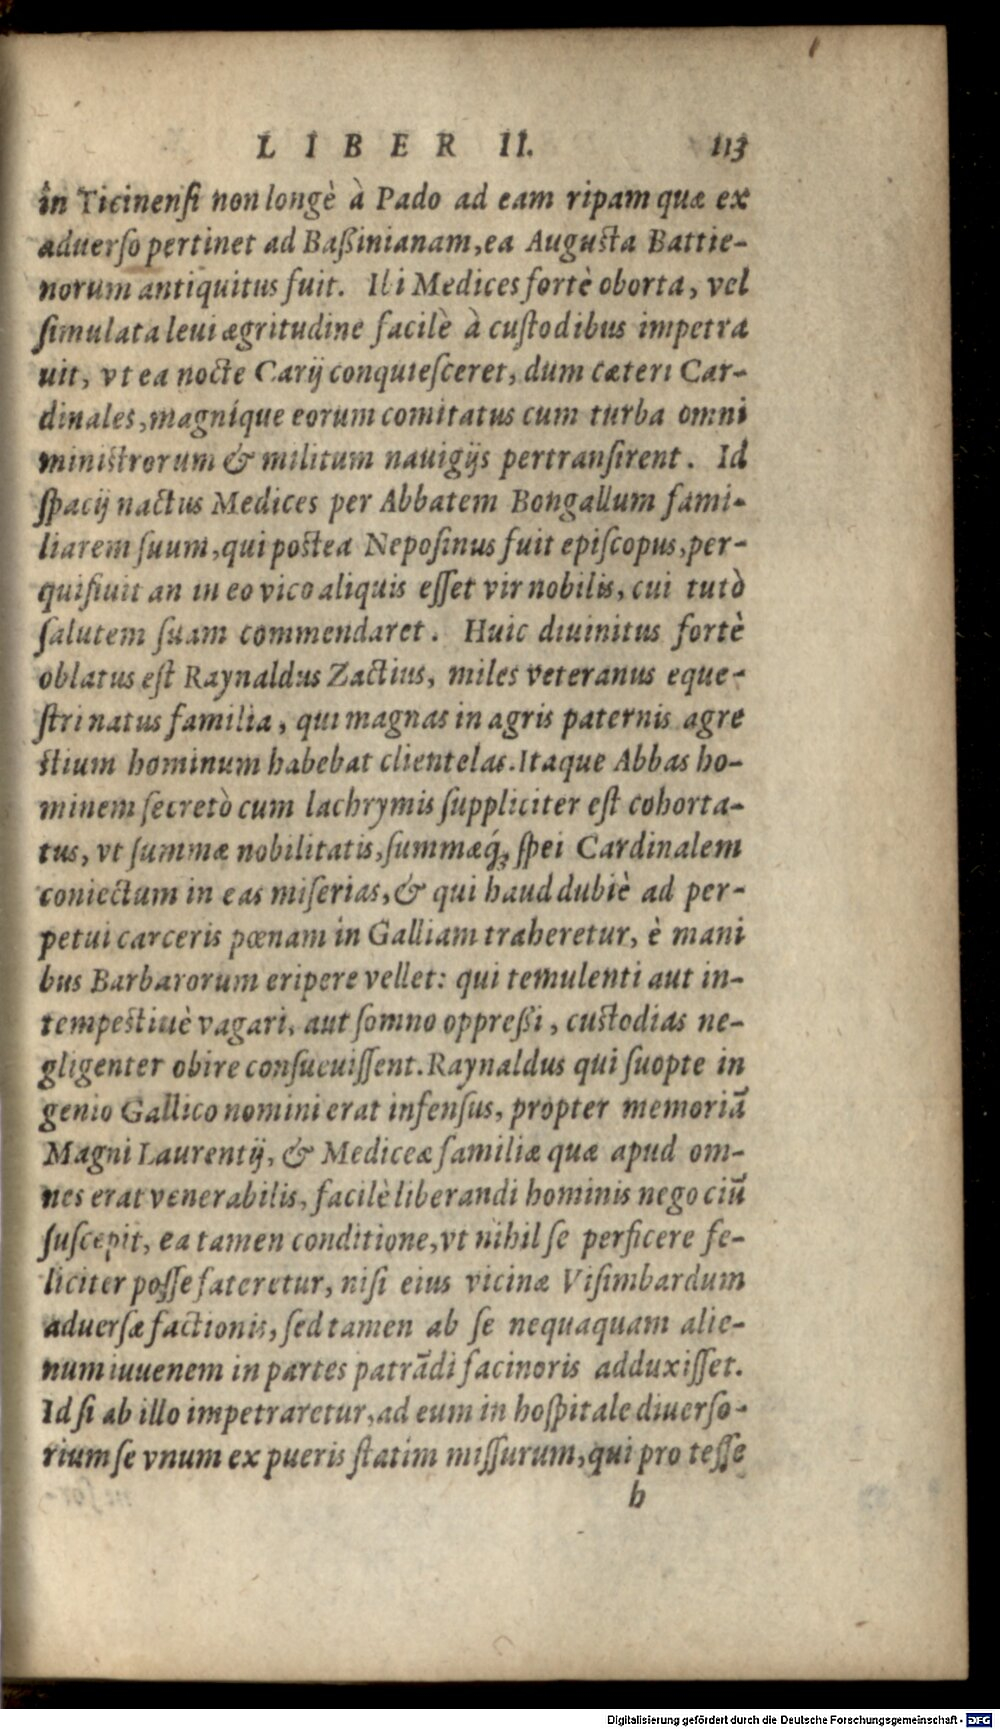 LIBER II. 113
in Ticinensi non longè à Pado ad eam ripam quæ ex
aduerso pertinet ad Baßinianam, ea Augusta Battie-
norum antiquitus fuit. Ibi Medices fortè oborta, vel
simulata leui ægritudine facilè à custodibus impetra
uit, vt ea nocte Carij conquiesceret, dum cæteri Car-
dinales, magníque eorum comitatus cum turba omni
ministrorum & militum nauigijs pertransirent. Id
spacij nactus Medices per Abbatem Bongallum fami-
liarem suum, qui postea Neposinus fuit episcopus, per-
quisiuit an in eo vico aliquis esset vir nobilis, cui tutò
salutem suam commendaret. Huic diuinitus fortè
oblatus est Raynaldus Zactius, miles veteranus eque-
stri natus familia, qui magnas in agris paternis agre
stium hominum habebat clientelas. Itaque Abbas ho-
minem secretò cum lachrymis suppliciter est cohorta-
tus, vt summæ nobilitatis, summæq́; spei Cardinalem
coniectum in eas miserias, & qui haud dubiè ad per-
petui carceris pœnam in Galliam traheretur, è mani
bus Barbarorum eripere vellet: qui temulenti aut in-
tempestiuè vagari, aut somno oppreßi, custodias ne-
gligenter obire consueuissent. Raynaldus qui suopte in
genio Gallico nomini erat infensus, propter memoriā
Magni Laurentij, & Mediceæ familiæ quæ apud om-
nes erat venerabilis, facilè liberandi hominis negociū
suscepit, ea tamen conditione, vt nihil se perficere fe-
liciter posse fateretur, nisi eius viciniæ Visimbardum
aduersæ factionis, sed tamen ab se nequaquam alie-
num iuuenem in partes patrādi facinoris adduxisset.
Id si ab illo impetraretur, ad eum in hospitale diuerso-
rium se vnum ex pueris statim missurum, qui pro tesse
h
Digitalisierung gefördert durch die Deutsche Forschungsgemeinschaft - DFG